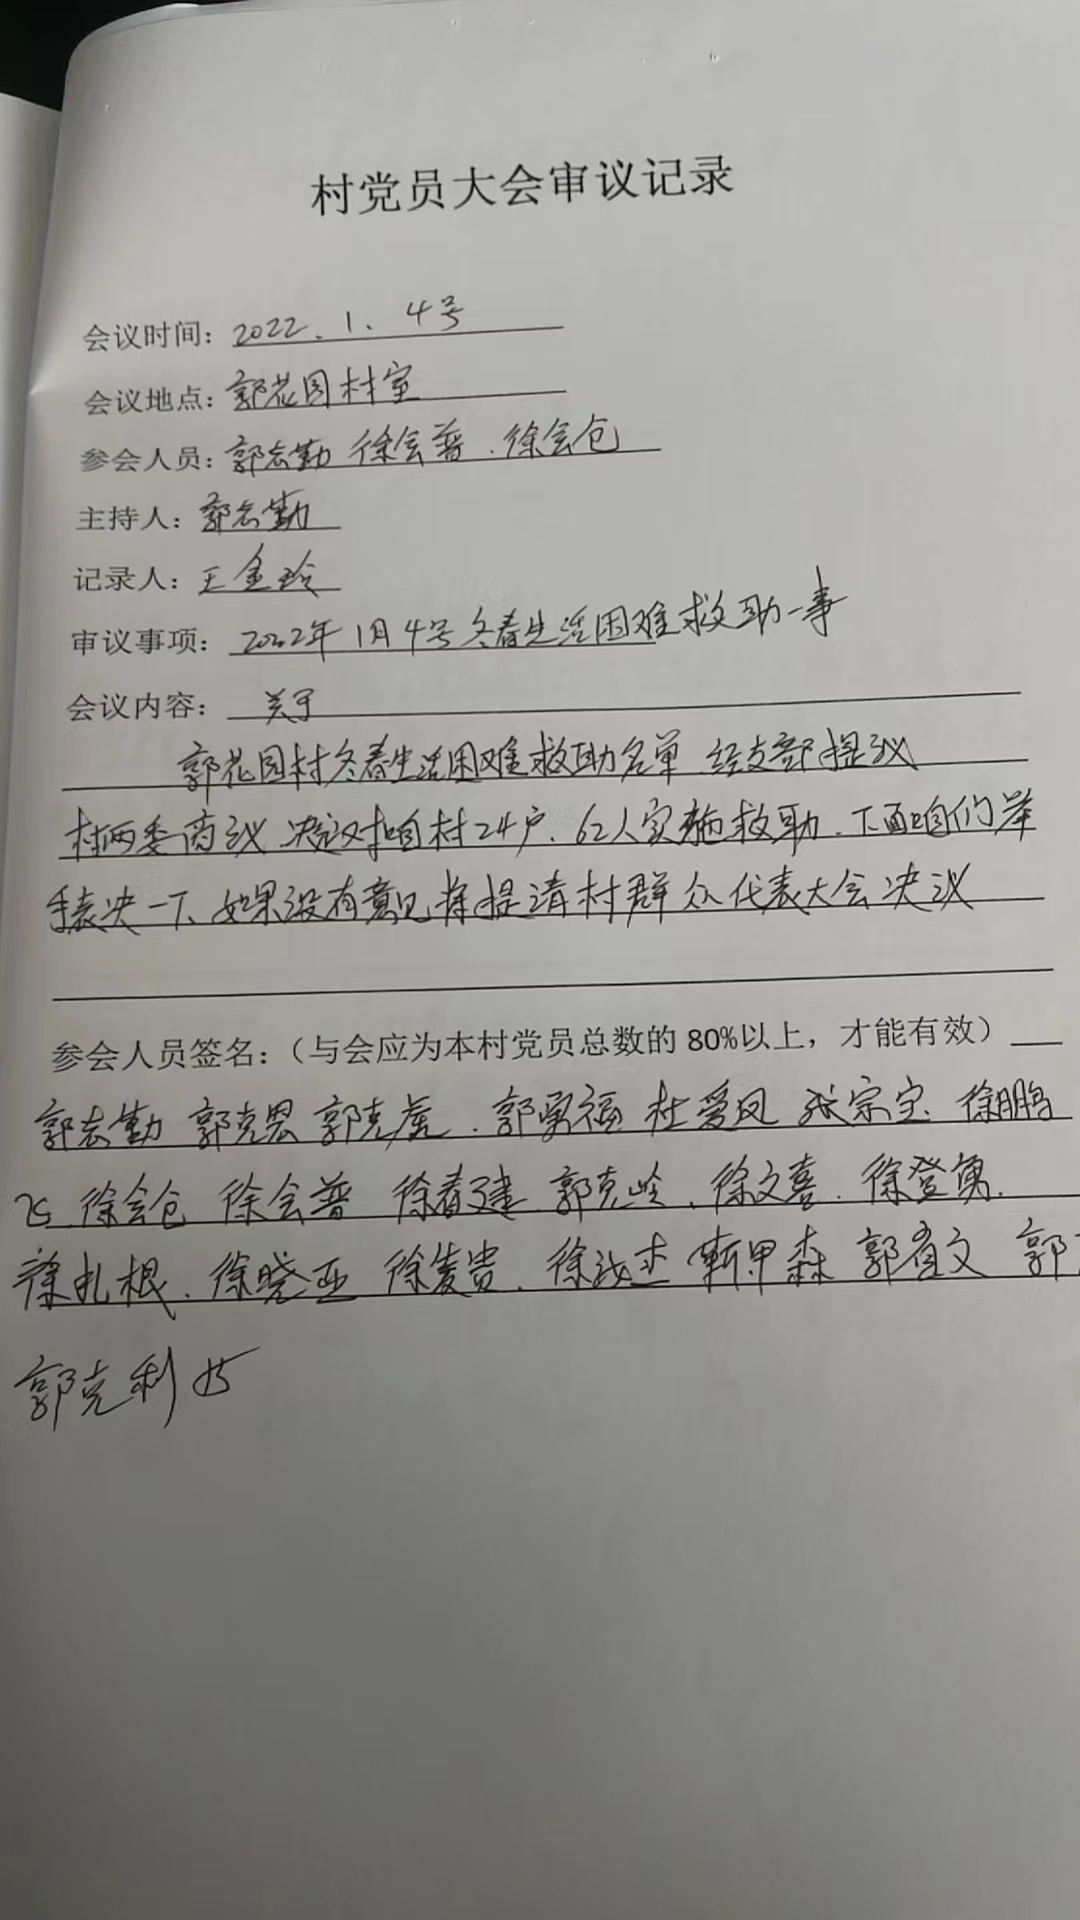 村党员大会审议记录
会议时间：2022.1.4号
会议地点：郭花园村室
参会人员：郭志勤 徐会普.徐会仓
主持人：郭志勤
记录人：王金玲
审议事项：2022年1月4号冬春生活困难救助一事
会议内容： 关于
郭花园村冬春生活困难救助名单 经支部提议
村两委商议.决议对咱村24户.62人实施救助.下面咱们举
手表决一下.如果没有意见将提请村群众代表大会决议
参会人员签名：（与会应为本村党员总数的80%以上，才能有效）
郭志勤 郭克恩 郭克虎.郭勇福 杜爱凤 张宗宝 徐鹏
飞.徐会仓 徐会普 徐春建 郭克岭.徐文喜.徐登勇.
徐扎根.徐晓亚 徐发贵. 靳甲森 郭 文 郭
郭克利